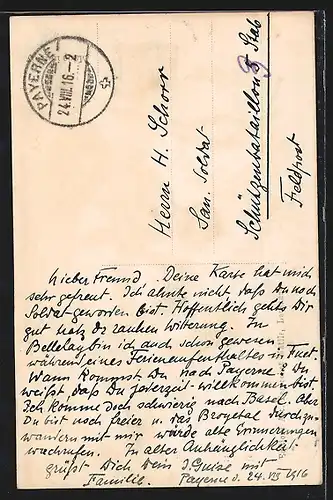 PAYERNE
24.VIII.16.-2
Herrn H. Schorr
San. Soldat
Schützenbataillon 3 Stab
Feldpost
Lieber Freund. Deine Karte hat mich
sehr gefreut. Ich ahnte nicht daß Du noch
Soldat geworden bist. Hoffentlich gehts Dir
gut trotz der rauhen Witterung. In
Bellelay bin ich auch schon gewesen
während eines Ferienaufenthaltes in Fuet.
Wann kommst Du nach Payerne? Du
weißt, daß Du jederzeit willkommen bist.
Ich komme doch schwierig nach Basel. Aber
Du bist noch freier u. das Broyetal durchzu-
wandern mit mir würde alte Erinnerungen
wachrufen. In alter Anhänglichkeit
grüßt Dich Dein J. mit
Familie. Payerne d. 24. VIII 1916